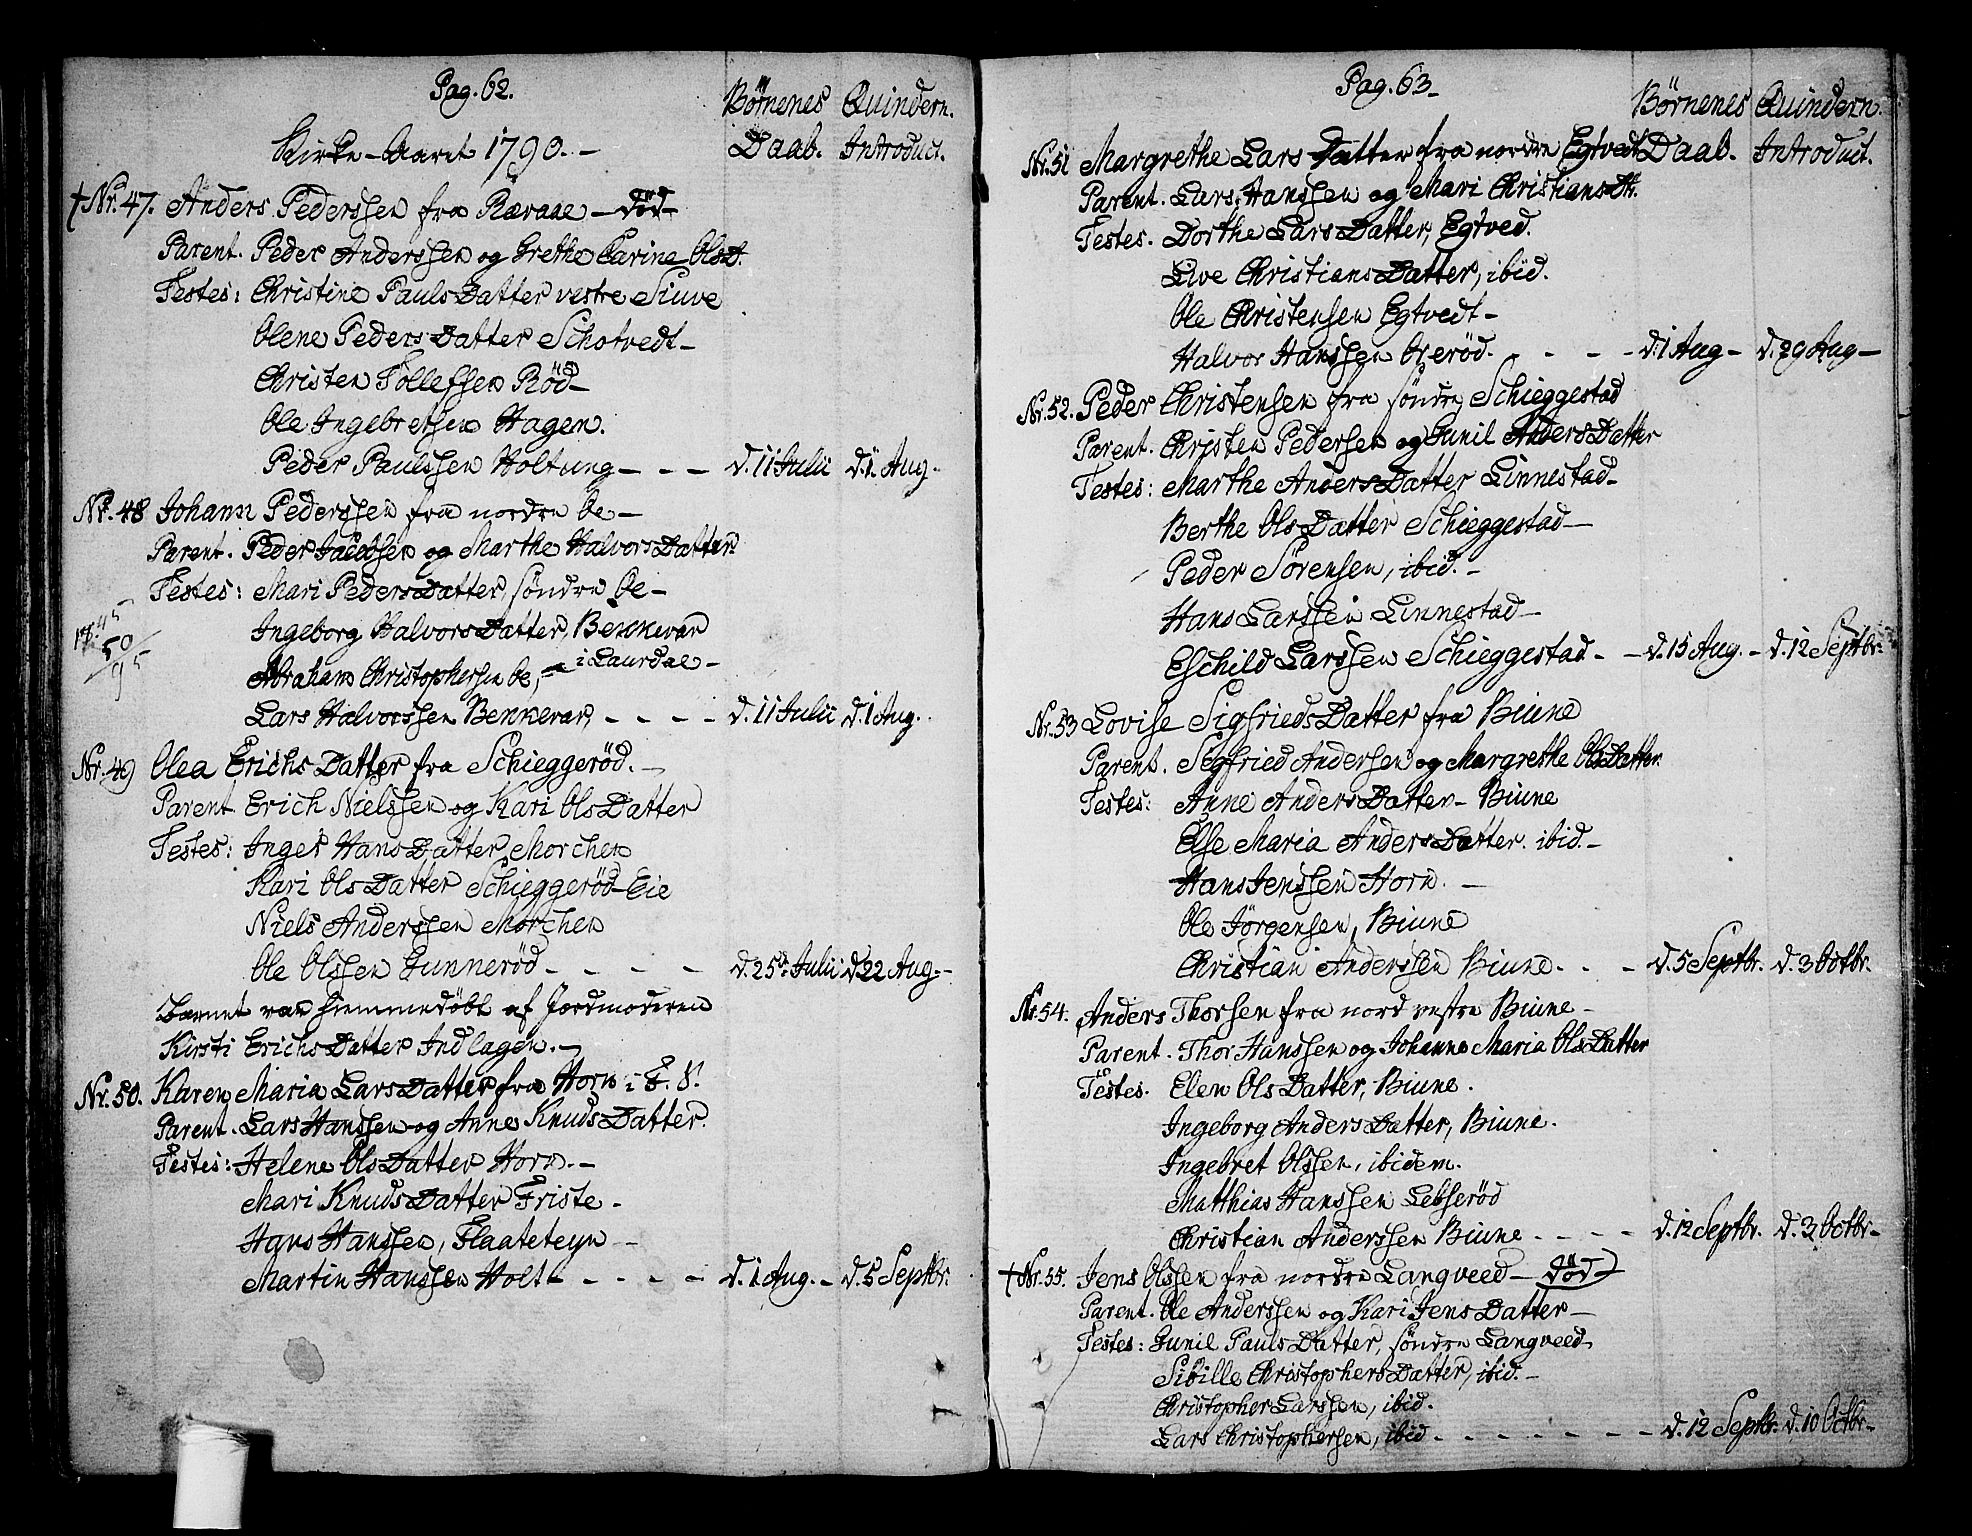 Pag. 62.
Børnenes Quindern.
Kirke-Aaret 1790. –
Daab. Introduct.
† Nr. 47. Anders Pederssen fra Ræraae – død –
Parent. Peder Anderssen og Grethe Carine OlsD.
Testes: Christine PaulsDatter vestre Siuve
Olene PedersDatter Schotvedt –
Christen Tollefsen Rød –
Ole Ingebretsen Hagen.
Peder Paulssen Holtung – – – d. 11 Julii d. 1. Aug. –
Nr. 48 Johann Pederssen fra nordre Oe –
Parent. Peder Jacobsen og Marthe HalvorsDatter
Testes: Mari PedersDatter, søndre Oe –
45
50
95
Ingeborg HalvorsDatter, Bekkevar
i Laurdal –
Abraham Christophersen Oe, –
Lars Halvorssen Bekkevar, – – – – d. 11 Julii d. 1 Aug.
Nr. 49 Olea ErichsDatter fra Schieggerød. –
Parent Erich Nielssen og Kari OlsDatter
Testes: Inger HansDatter Morchen
Kari OlsDatter Schieggerød-Eie
Niels Anderssen Morchen
Ole Olssen Gunnerød – – – – d. 25de Julii d. 22 Aug. –
Barnet var hiemmedøbt af Jordmoderen
Kirsti ErichsDatter Indlagen. –
Nr. 50. Karen Maria LarsDatter fra Horn i E. S.
Parent. Lars Hanssen og Anne KnudsDatter.
Testes: Helene OlsDatter Horn. –
Mari KnudsDatter Friste –
Hans Hanssen, Flaateteyn –
Martin Hanssen Holt – – – – – d. 1 Aug. – d. 5 Septbr.
Pag. 63 –
Børnenes Quindern.
Nr. 51 Margrethe LarsDatter fra nordre Egtvedt Daab. Introduct.
Parent. Lars Hanssen og Mari ChristiansDtr.
Testes. Dorthe LarsDatter, Egtved.
Live ChristiansDatter, ibid.
Ole Christensen Egtvedt –
Halvor Hanssen Oserød. – – – d. 1 Aug – d. 29 Aug –
Nr. 52. Peder Christensen fra søndre Schieggestad
Parent. Christen Pedersen og Gunil AndersDatter
Testes: Marthe AndersDatter Linnestad –
Berthe OlsDatter Schieggestad –
Peder Sørensen, ibid. –
Hans Larssen Linnestad –
Eschild Larssen Schieggestad – – d. 15 Aug. – d. 12 Septbr.
Nr. 53 Lovise SigfriedsDatter fra Biune
Parent. Segfried Andersen og Margrethe OlsDatter
Testes: Anne AndersDatter – Biune
Else Maria AndersDatter. ibid. –
Hans Jenssen Horn. –
Ole Jørgensen, Biune
Christian Anderssen Biune. – – – d. 5 Septbr. d. 3 Octbr.
Nr. 54. Anders Thorsen fra nord vestre Biune –
Parent. Thor Hanssen og Johanne Maria OlsDatter
Testes. Elen OlsDatter, Biune.
Ingeborg AndersDatter, Biune.
Ingebret Olssen, ibidem.
Matthias Hanssen Lebserød
Christian Anderssen Biune – – – – d. 12 Septbr. d. 3 Octbr –
† Nr. 55. Jens Olssen fra nordre Langveed – død
Parent. Ole Anderssen og Kari JensDatter –
Testes: Gunil PaulsDatter, søndre Langveed.
Sibille ChristophersDatter, ibid. –
Christopher Larssen, ibid.
Lars Christophersen, ibid – – – – – – – d. 12 Septbr. d. 10 Octbr –